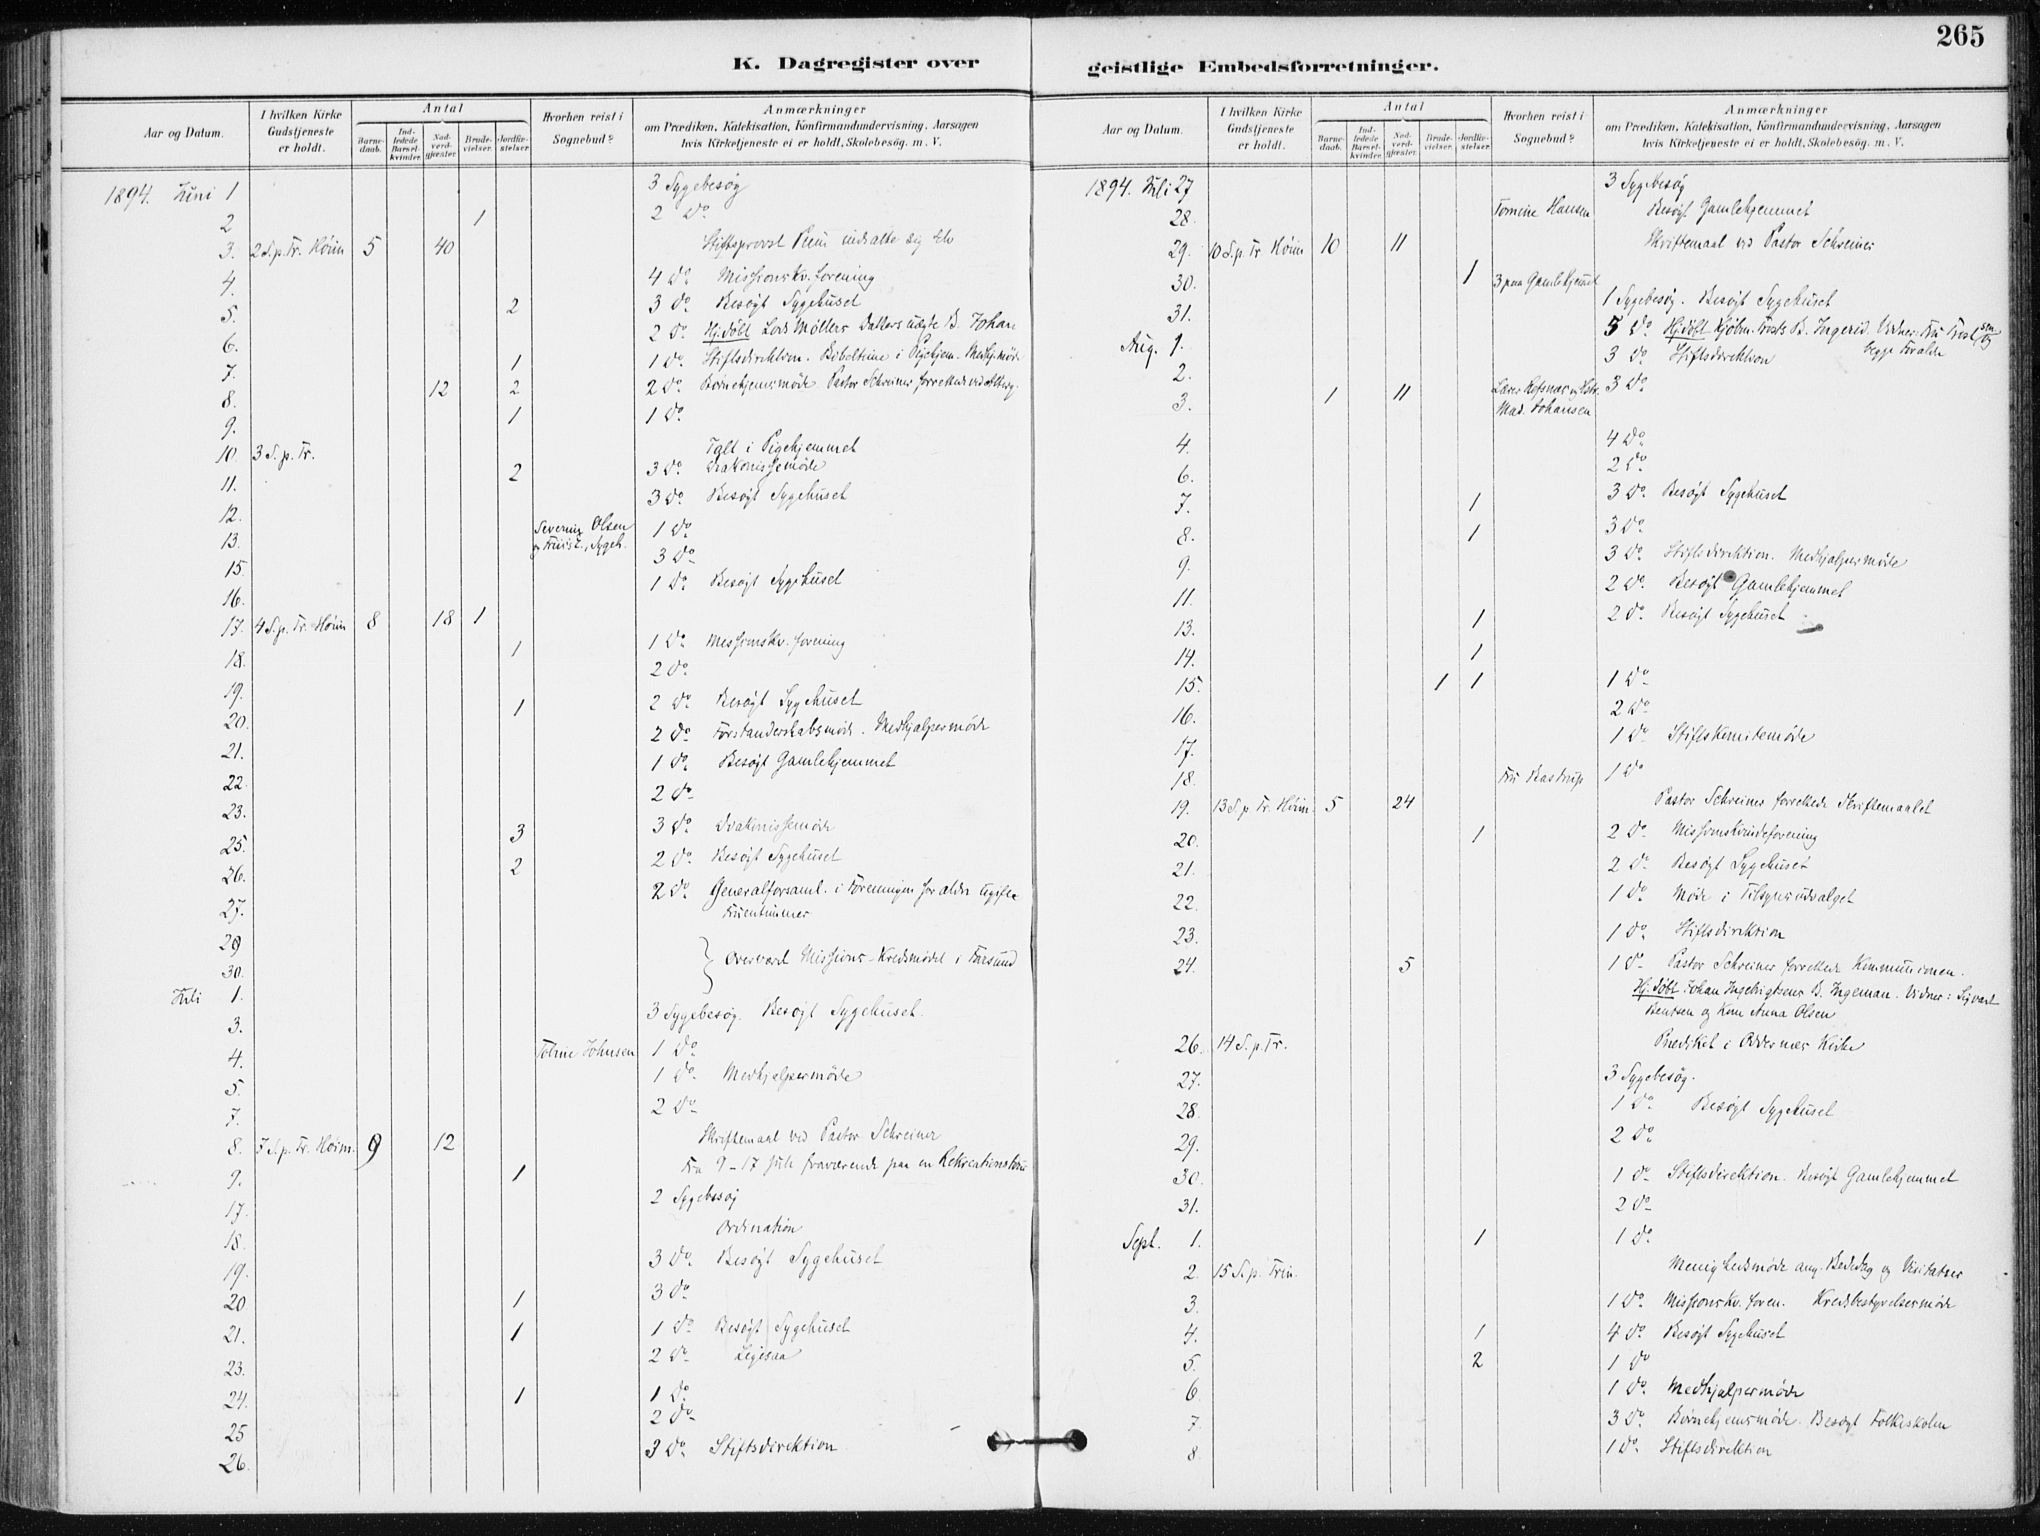 265
K. Dagregister over geistlige Embedsforretninger.
Aar og Datum.
I hvilken Kirke Gudstjeneste er holdt.
Antal
Barnedaab.
Indledede Barselkvinder.
Nadverdgjæster.
Brudevielser.
Jordfæstelser.
Hvorhen reist i Sognebud?
Anmærkninger
om Prædiken, Katekisation, Konfirmandundervisning, Aarsagen
hvis Kirketjeneste ei er holdt, Skolebesøg. m. V.
1894. Juni 1 3 Sygebesøg
2 1 2 Do
3. 2 S. p. Tr. Høim 5 40 Stiftsprovst indsatte sig selv
4. 4 Do Missionskv. forening
5. 2 3 Do Besøgt Sygehuset
6. 2 Do Hj. døbt Møllers Datters uægte B. Johan
7. 1 1 Do Stiftsdirektion. Bibeltime i Pigehjem. Medhj. møde
8. 12 2 2 Do Børnehjemsmøde Pastor Schreiner forrettede ved Alterg.
9. 1 1 Do
10. 3 S. p. Tr. Talt i Pigehjemmet
11. 2 3 Do Diakonissemøde
12. 3 Do Besøgt Sygehuset
13. Severin Olsen 1 Do
15. 3 Do
16. 1 Do Besøgt Sygehuset
17. 4 S. p. Tr. Høim 8 18 1
18. 1 1 Do Missionskv. forening
19. 2 Do
20. 1 2 Do Besøgt Sygehuset
21. 2 Do Forstanderskabsmøde. Medhjælpermøde
22. 1 Do Besøgt Gamlehjemmet
23. 2 Do
25. 3 3 Do Diakonissemøde
26. 2 2 Do Besøgt Sygehuset
27. 2 Do Generalforsaml. i Foreningen for ældre ugifte
Fruentimmer
29
30. Overværet Missions-Kredsmødet i Farsund
Juli 1.
3. 3 Sygebesøg. Besøgt Sygehuset.
4. Toline Johnsen 1 Do
5. 1 Do Medhjælpermøde
7. 2 Do
8. 7 S. p. Tr. Høim. 9 12 Skriftemaal ved Pastor Schreiner
9. 1 Fra 9-17 Juli fraværende paa en Rekreationstour
17. 2 Sygebesøg
18. Ordination
19. 3 Do Besøgt Sygehuset
20 1 3 Do
21. 1 1 Do Besøgt Sygehuset
23. 2 Do
24. 1 1 Do
25 2 Do
26. 3 Do Stiftsdirektion
Aar og Datum.
I hvilken Kirke Gudstjeneste er holdt.
Antal
Barnedaab.
Indledede Barselkvinder.
Nadverdgjæster.
Brudevielser.
Jordfæstelser.
Hvorhen reist i Sognebud?
Anmærkninger
om Prædiken, Katekisation, Konfirmandundervisning, Aarsagen
hvis Kirketjeneste ei er holdt, Skolebesøg. m. V.
1894. Juli 27 3 Sygebesøg
28. Tomine Hansen Besøgt Gamlehjemmet
29. 10 S. p. Tr. Høim 10 11 Skriftemaal ved Pastor Schreiner
30. 1 3 paa Gamlehjemmet
31. 1 Sygebesøg. Besøgt Sygehuset
Aug. 1. 5 Do Hj. døbt Kjøbm. B. Ingerid. Vidner: Fru
begge Forældre
2. 3 Do Stiftsdirektion
3. 1 11 Lærer Refsnæs og Hstr. 3 Do
Mad. Johansen
4. 4 Do
6. 2 Do
7. 1 3 Do Besøgt Sygehuset
8. 1 3 Do
9. 3 Do Stiftsdirektion. Medhjælpermøde
11. 2 Do Besøgt Gamlehjemmet
13. 1 2 Do Besøgt Sygehuset
14. 1
15. 1 1 1 Do
16. 2 Do
17. 1 Do Stiftskomitemøde
18. Fru Kastrup 1 Do
19. 13 S. p. Tr. Høim. 5 24 Pastor Schreiner forrettede Skriftemaalet
20. 1 2 Do Missionskvindeforening
21. 2 Do Besøgt Sygehuset
22. 1 Do Møde i Tilsynsudvalget
23. 1 Do Stiftsdirektion
24. 5 1 Do Pastor Schreiner forrettede Kommunionen.
Hj. døbt Johan Ingebrigtsens B. Ingeman. Vidner: Sigvart
Bentsen og Kone Anna Olsen
26. 14 S. p. Tr. Prædiket i Oddernæs Kirke
27. 3 Sygebesøg.
28. 1 Do Besøgt Sygehuset
29. 2 Do
30. 1 Do Stiftsdirektion. Besøgt Gamlehjemmet
31. 2 Do
Sept. 1. 1 1 Do
2. 15 S. p. Trin. Menighedsmøde ang. Bededag og Visitatser
3. 1 Do Missionskv. foren. Kredsbestyrelsesmøde
4. 1 4 Do Besøgt Sygehuset
5. 2 1 Do
6 1 Do Medhjælpermøde
7. 3 Do Børnehjemsmøde. Besøgt Folkeskolen
8 1 Do Stiftsdirektion